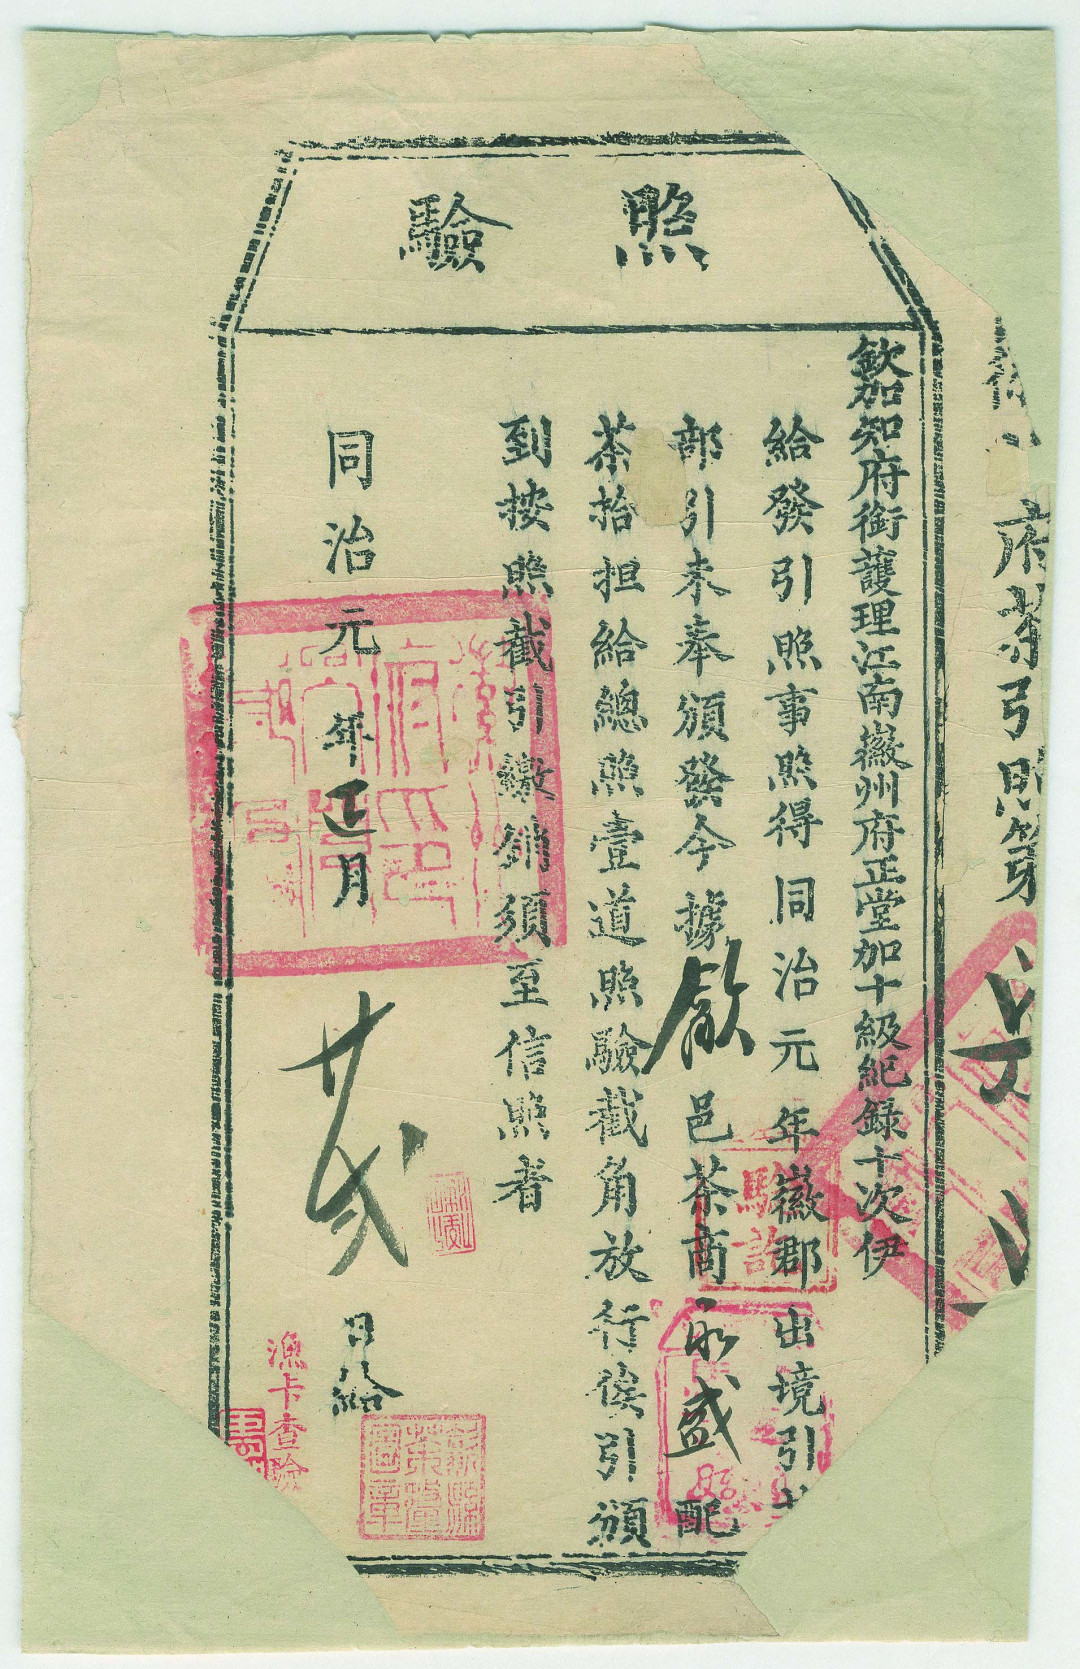 府茶引照第
照驗
欽加知府銜護理江南徽州府正堂加十級紀錄十次伊
給發引照事照得同治元年徽郡出境引
部引未奉頒發今據歙邑茶商永盛配
茶拾担給總照壹道照驗截角放行俟引頒
到按照截引繳銷須至信照者
同治元年正月
日給
驗訖
漁卡查驗